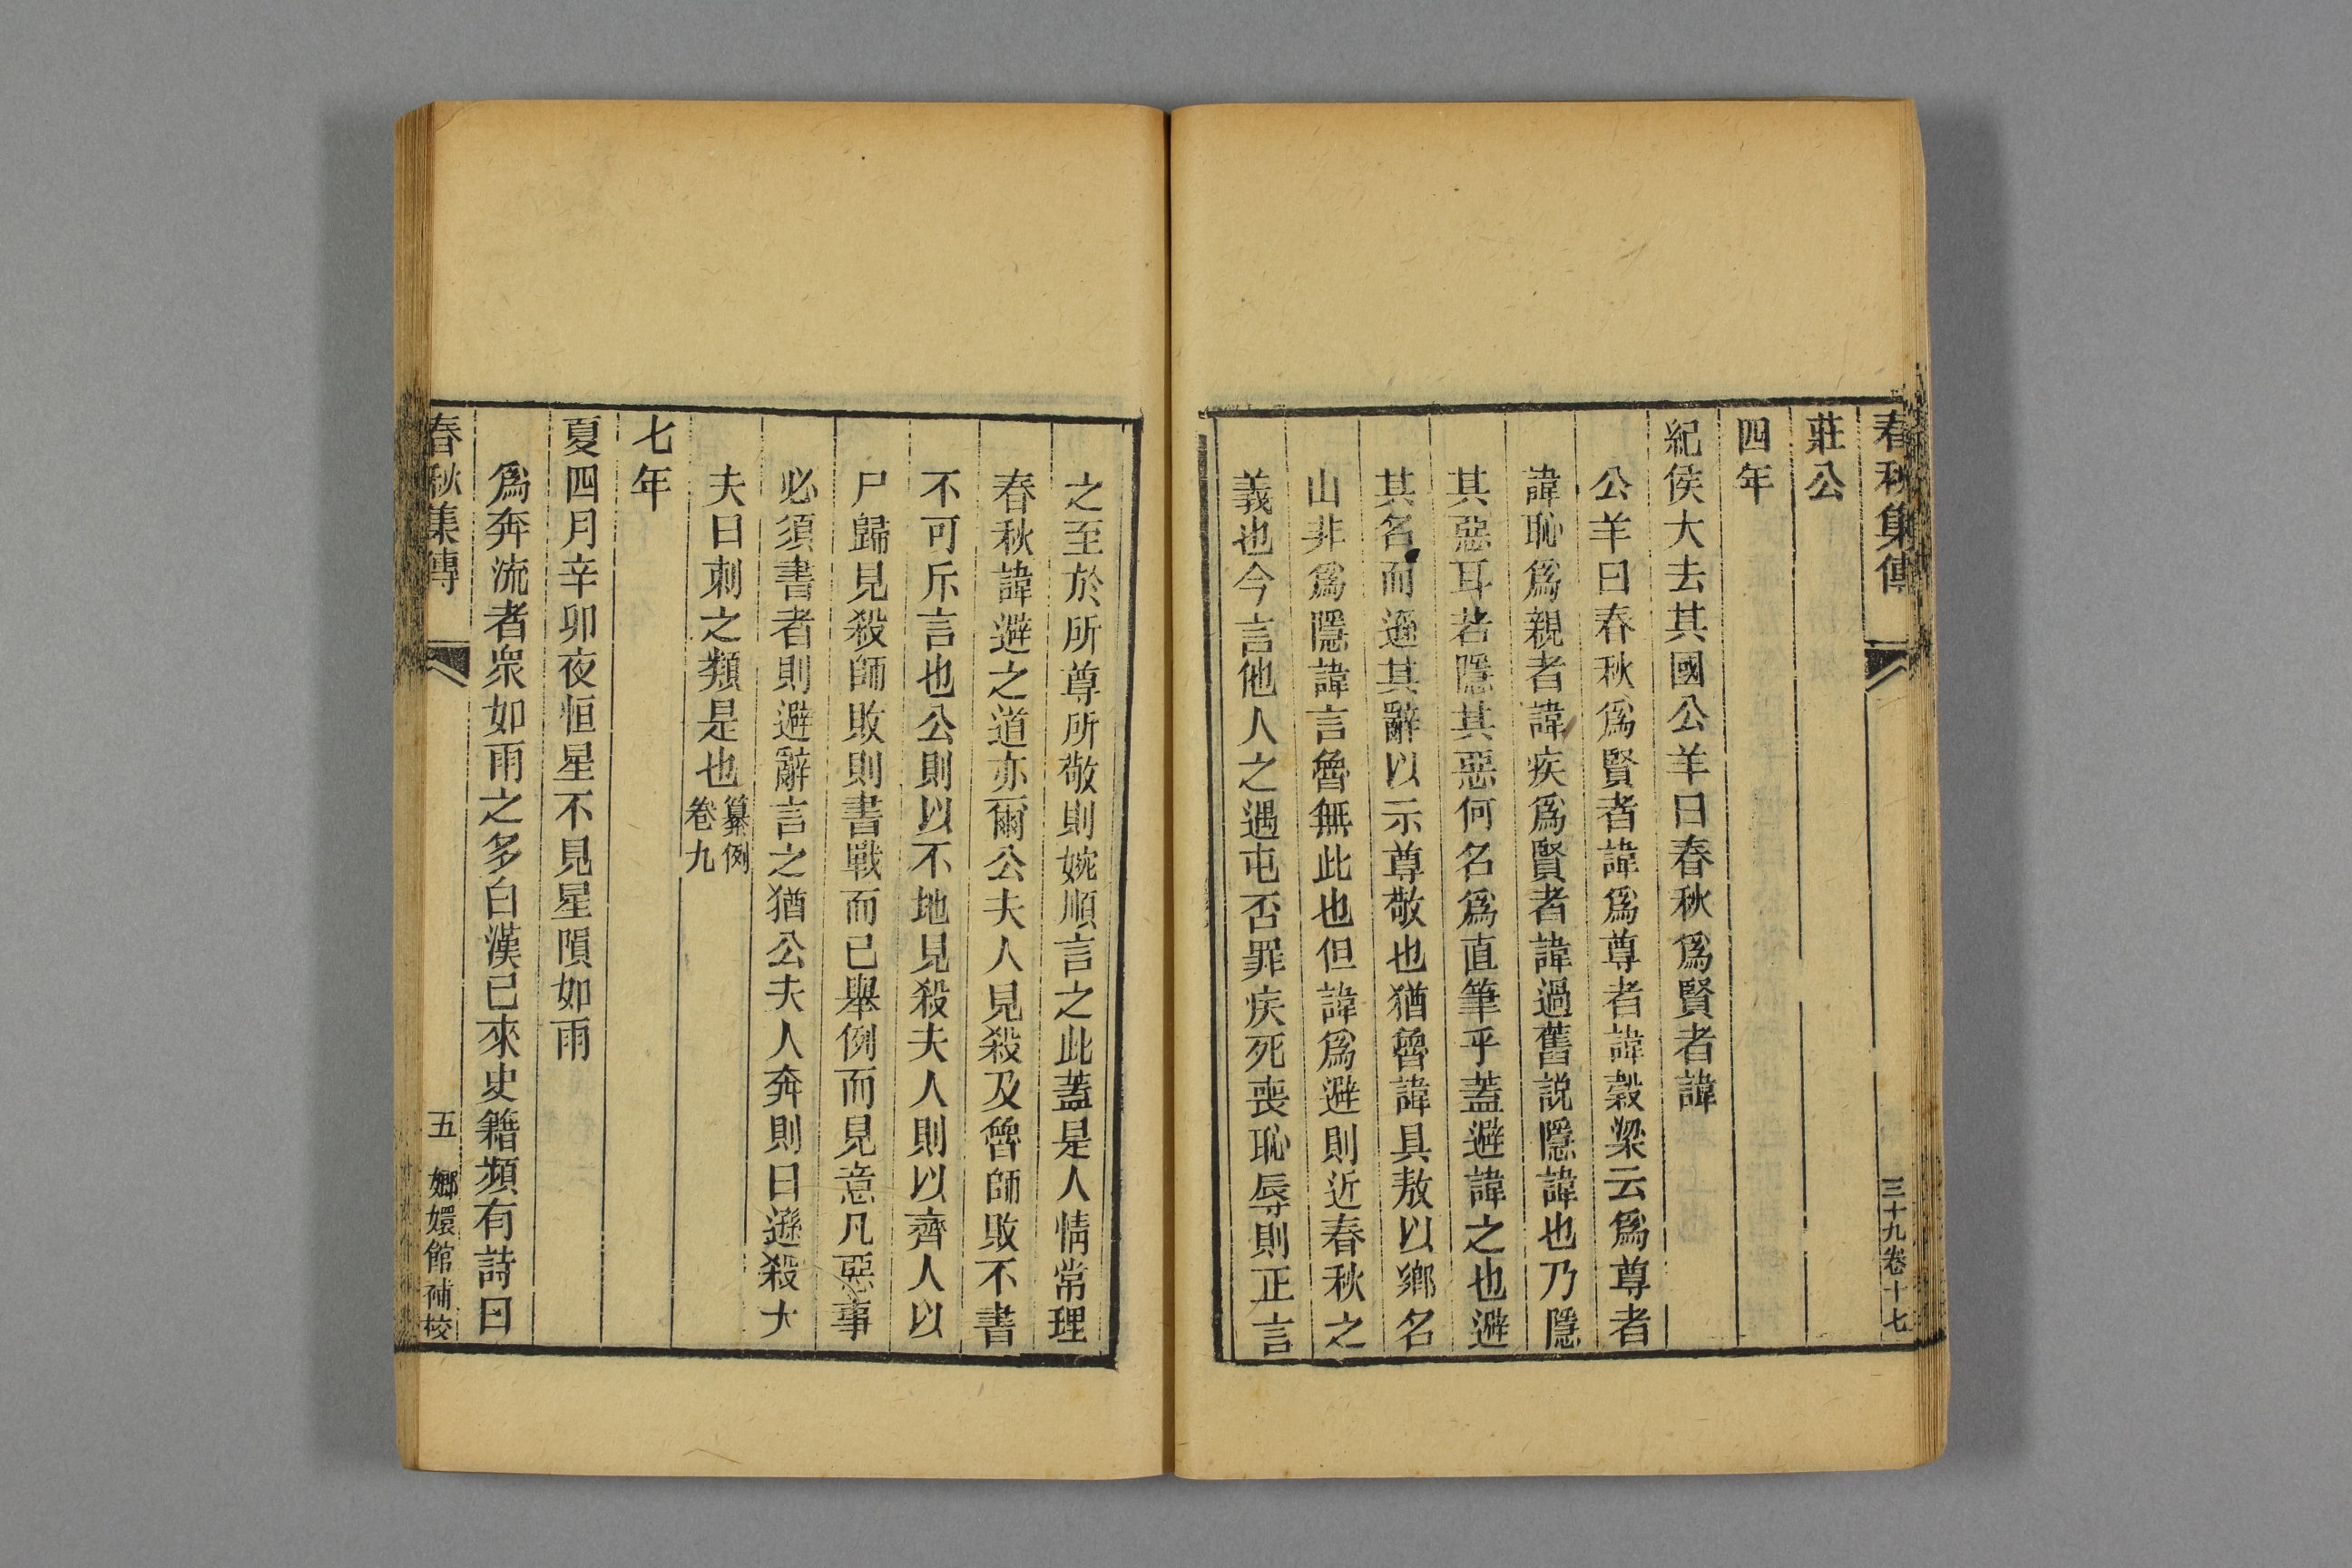 春秋集傳
三十九卷十七
莊公
四年
紀侯大去其國公羊曰春秋爲賢者諱
公羊曰春秋爲賢者諱爲尊者諱穀梁云爲尊者
諱恥爲親者諱疾爲賢者諱過舊説隱諱也乃隱
其惡耳若隱其惡何名爲直筆乎蓋避諱之也避
其名而遜其辭以示尊敬也猶魯諱具敖以鄉名
山非爲隱諱言魯無此也但諱爲避則近春秋之
義也今言他人之遇屯否罪疾死喪恥辱則正言
之至於所尊所敬則婉順言之此蓋是人情常理
春秋諱避之道亦爾公夫人見殺及魯師敗不書
不可斥言也公則以不地見殺夫人則以齊人以
尸歸見殺師敗則書戰而已舉例而見意凡惡事
必須書者則避辭言之猶公夫人奔則曰遜殺大
夫曰刺之類是也纂例
卷九
七年
夏四月辛卯夜恒星不見星隕如雨
爲奔流者衆如雨之多自漢已來史籍頻有詩曰
春秋集傳
五
嫏嬛館補校